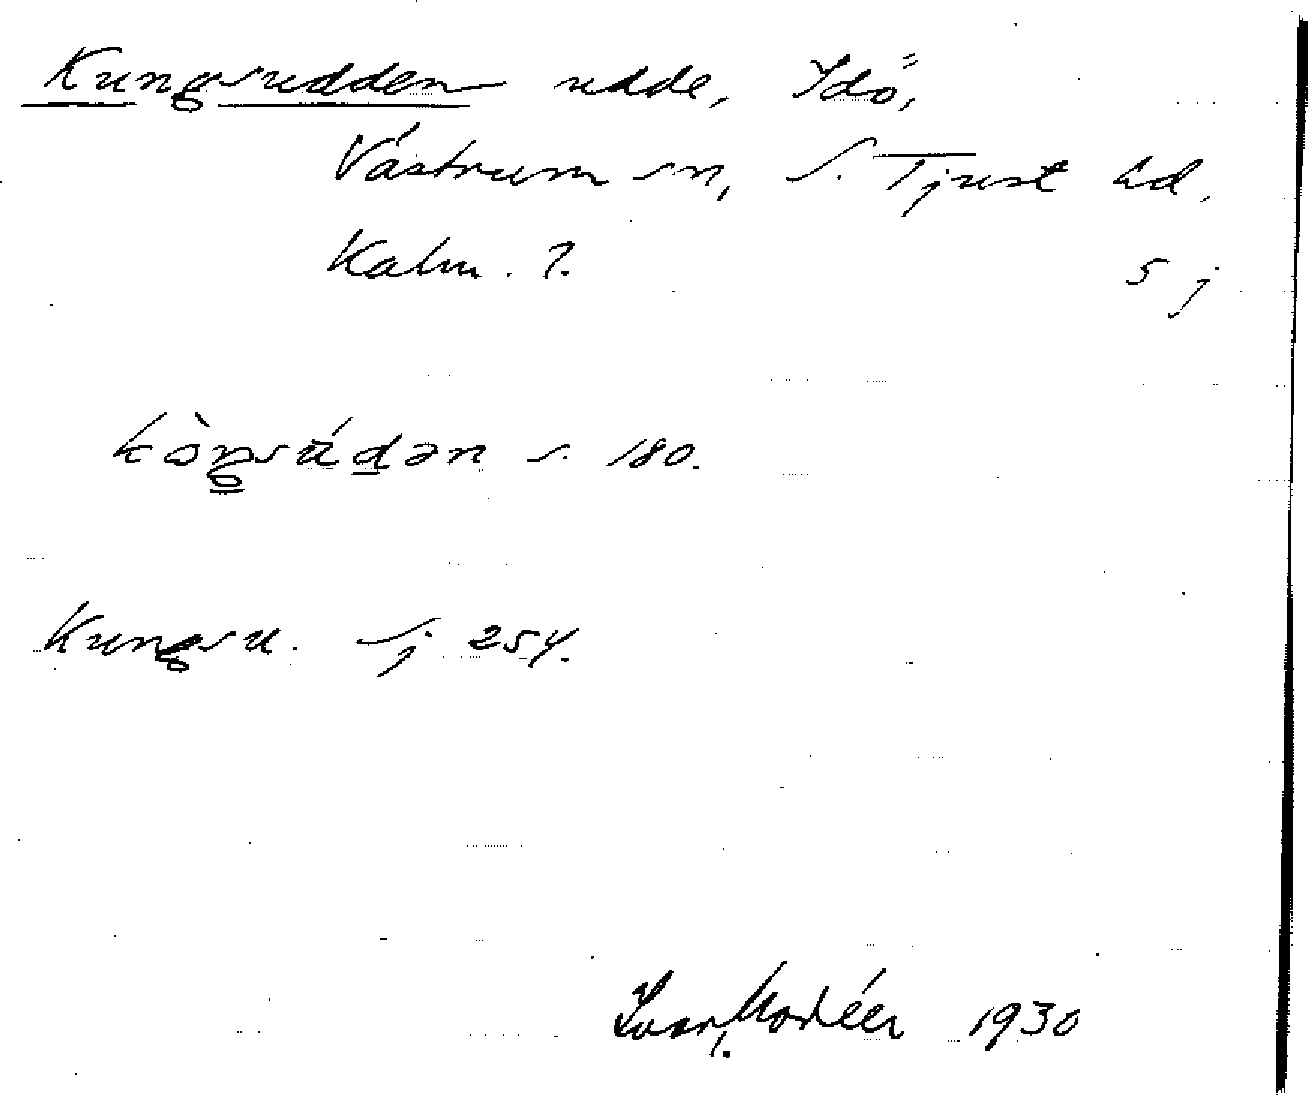 Kungsudden udde, Idö,
Västrum sn, S. Tjust hd,
Kalm. l.
5 j
kòŋsúdən s. 180.
Kungsu. Sj 254.
Ivar Modéer 1930